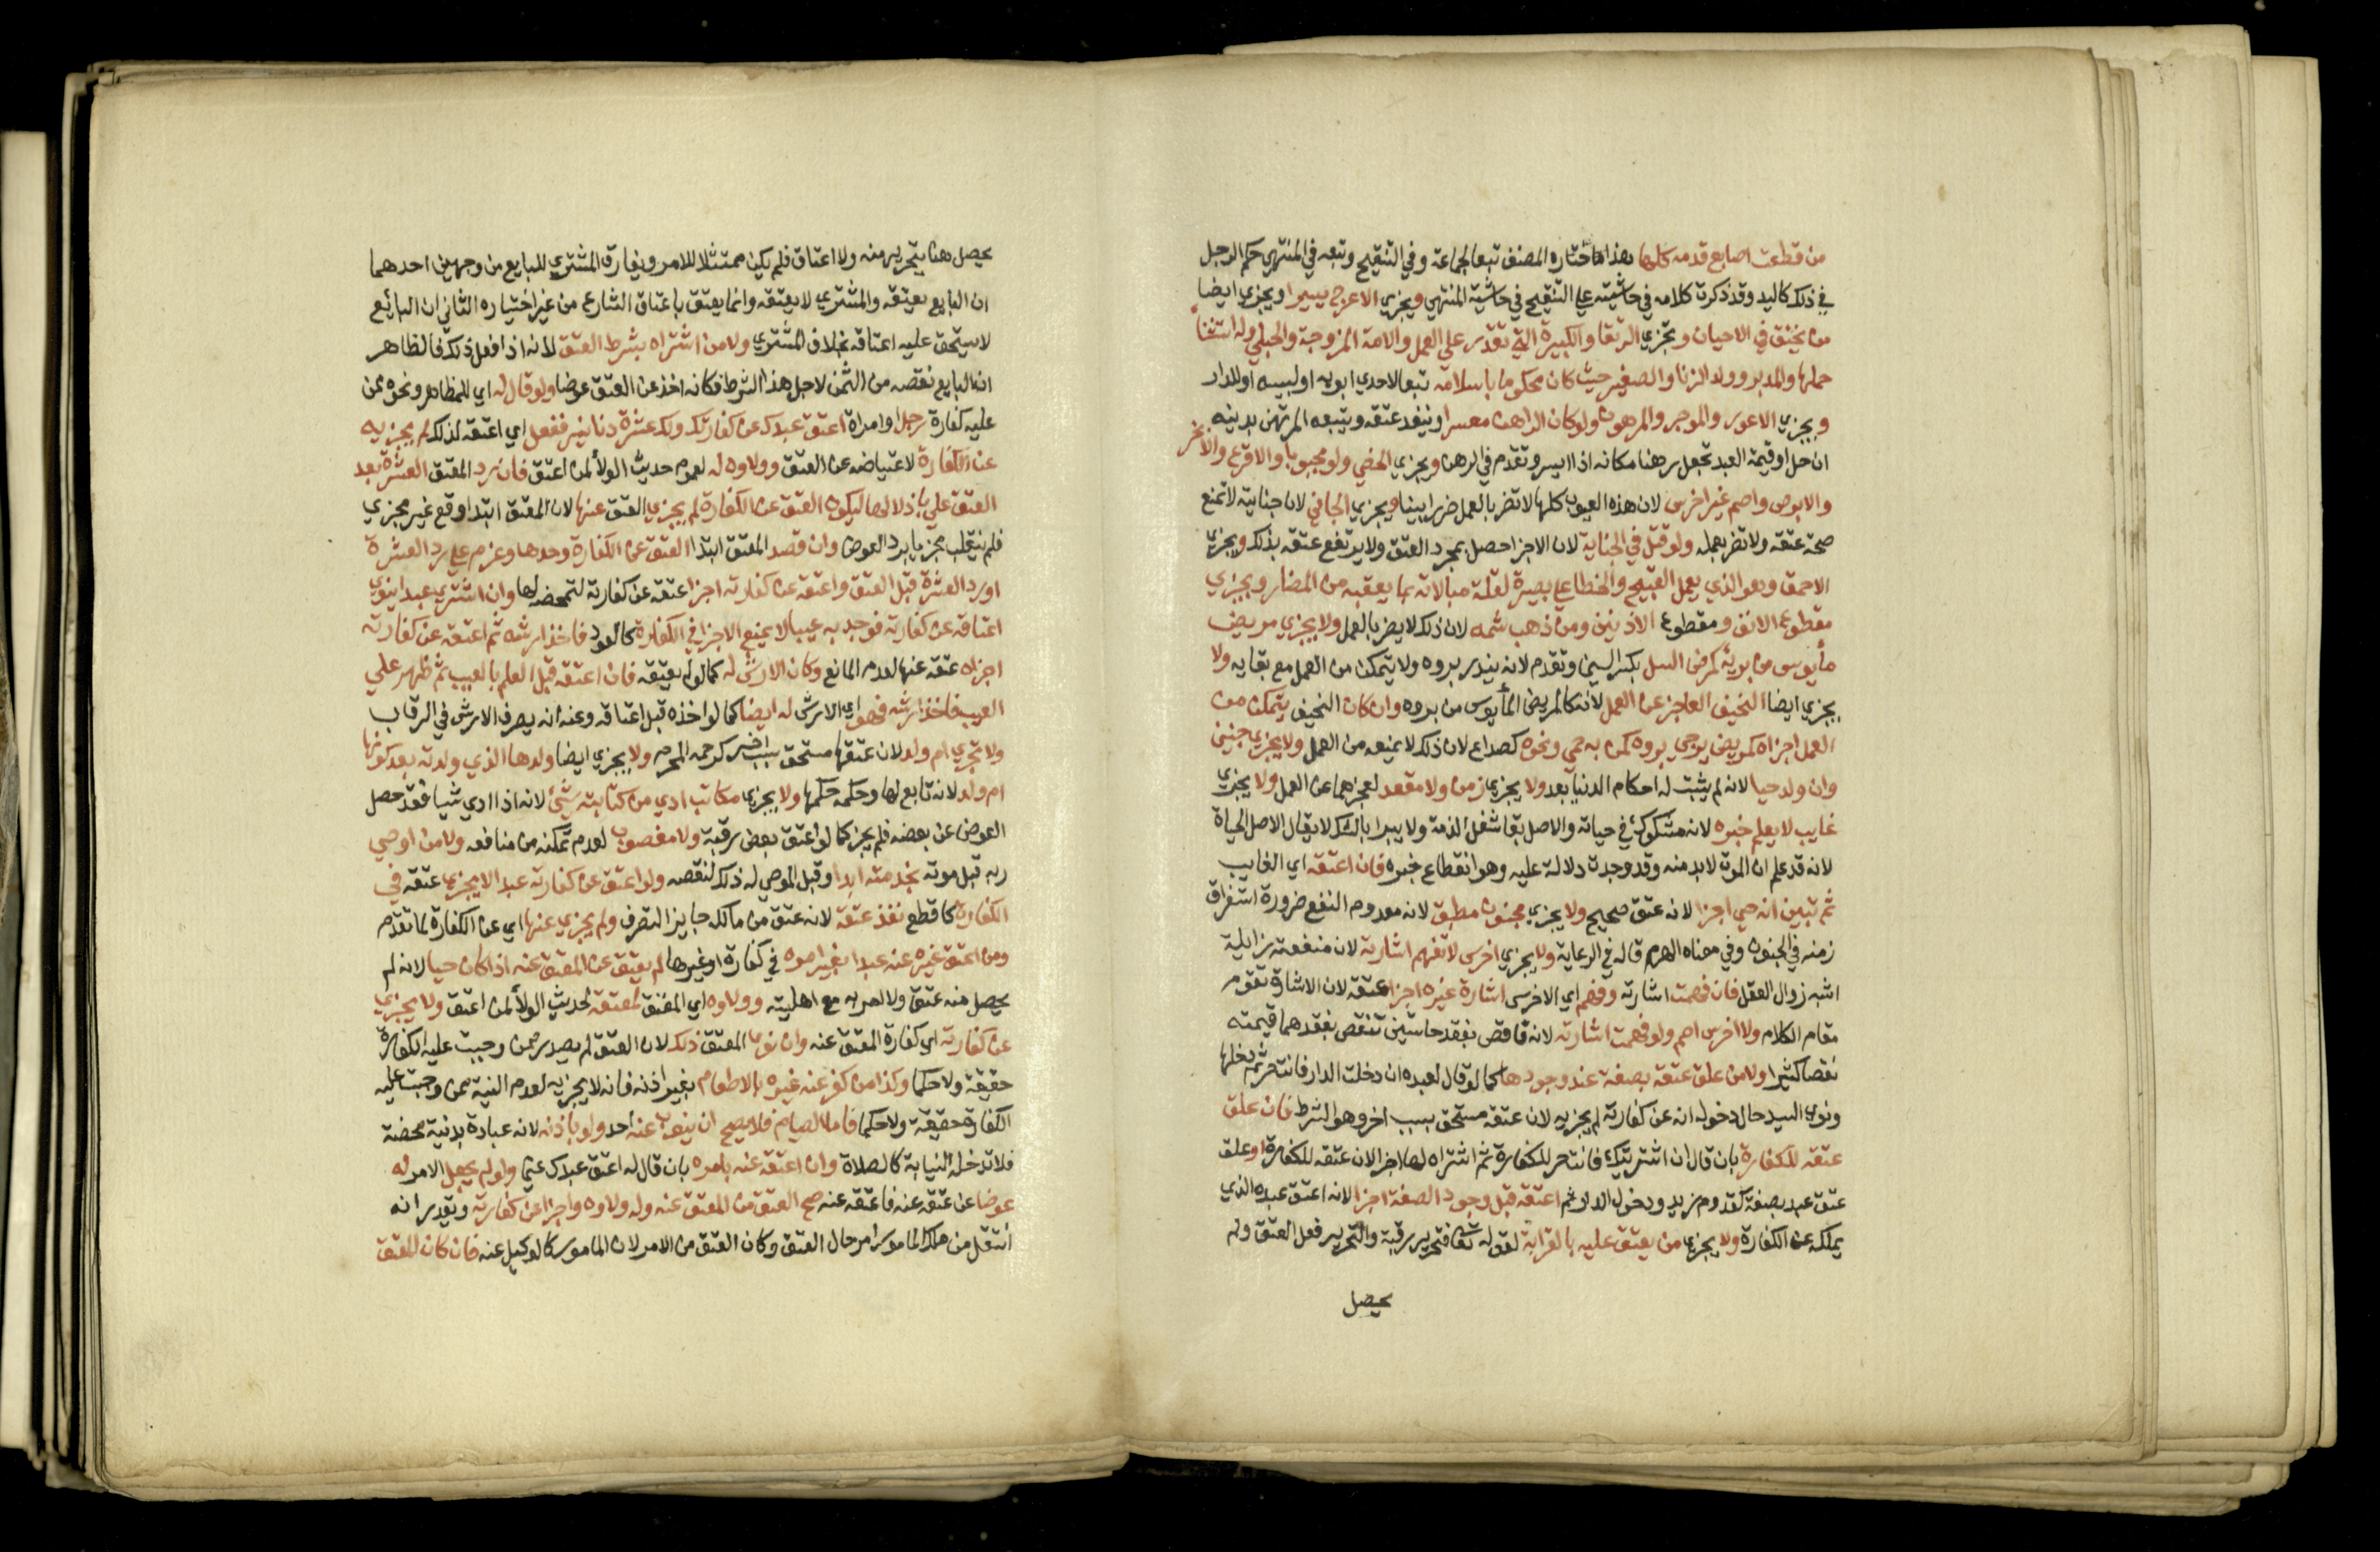 من قطعت اصابع قدمه كلها هذا ما اختاره المصنف تبعا لجماعة وفي التنقيح وتبعه في المنتهى حكم الرجل
في ذلك كاليد وقد ذكرت كلامه في حاشيته على التنقيح في حاشية المنتهى ويجزي الاعرج يسيرا ويجزي ايضا
من يخنق في الاحيان وتجزي الرتقا والكبيرة التي تقدر على العمل والامة المزوجة والحبلى وله استثنا
حملها والمدبر وولد الزنا والصغير حيث كان محكوما باسلامه تبعا لاحدي ابويه او لسبيه او للدار
ويجزي الاعور والموجر والمرهون ولو كان الراهن معسرا وينفد عتقه ويتبعه المرتهن بدينه
ان حل او قيمة العبد تجعل رهنا مكانه اذا ايسر وتقدم في الرهن ويجزي الخصي ولو مجبوبا والاقرع والابخر
والابرص واصم غير اخرس لان هذه العيوب كلها لا تضر بالعمل ضررا بينا ويجزي الجاني لان جنايته لا تمنع
صحة عتقه ولا تضر بعمله ولو قتل في الجناية لان الاجزا حصل بمجرد العتق ولا يرتفع عتقه بذلك ويجزي
الاحمق وهو الذي يعمل القبيح والخطا على بصيرة لقلة مبالاته بما يعقبه من المضار ويجزي
مقطوع الانف ومقطوع الاذنين ومن ذهب شمه لان ذلك لا يضر بالعمل ولا يجزي مريض
مأيوس من بريه كمرض السل بكسر السين وتقدم لانه يندر بروه ولا يتمكن من العمل مع بقايه ولا
يجزي ايضا النحيف العاجز عن العمل لانه كالمريض المأيوس من بروه وان كان النحيف يتمكن من
العمل اجزاه كمريض يرجى بروه كمن به حمى ونحوه كصداع لان ذلك لا يمنعه من العمل ولا يجزي جنين
وان ولد حيا لانه لم يثبت له احكام الدنيا بعد ولا يجزي زمن ولا مقعد لعجزهما عن العمل ولا يجزي
غايب لا يعلم خبره لانه مشكوك في حياته والاصل بقا شغل الذمة ولا يبرا بالشك لا يقال الاصل الحياة
لانه قد علم ان الموت لابد منه وقد وجدت دلالة عليه وهو انقطاع خبره فان اعتقه اي الغايب
ثم تبين انه حي اجزا لانه عتق صحيح ولا يجزي مجنون مطبق لانه معدوم النفع ضرورة استغراق
زمنه في الجنون وفي معناه الهرم قاله في الرعاية ولا يجزي اخرس لا تفهم اشارته لان منفعته زايلة
اشبه زوال العقل فان فهمت اشارته وفهم اي الاخرس اشارة غيره اجزا عتقه لان الاشارة تقوم
مقام الكلام ولا اخرس اصم ولو فهمت اشارته لانه ناقص بفقد حاستين تنقص بفقدهما قيمته
نقصا كثيرا ولا من علق عتقه بصفة عند وجودها كما لو قال لعبده ان دخلت الدار فانت حر ثم دخلها
ونوى السيد حال دخوله انه عن كفارته لم يجزيه لان عتقه مستحق بسبب اخر وهو الشرط فان علق
عتقه للكفارة بان قال ان اشتريتك فانت حر للكفارة ثم اشتراه لها اجزا لان عتقه للكفارة او علق
عتق عبد بصفة كقدوم زيد ودخول الدار ثم اعتقه قبل وجود الصفة اجزا لانه اعتق عبده الذي
يملكه عن الكفارة ولا يجزي من يعتق عليه بالقرابة لقوله تعالى فتحرير رقبة والتحرير فعل العتق ولم
يحصل
يحصل هنا بتحرير منه ولا اعتاق فلم يكن ممتثلا للامر ويفارق المشتري للبايع من وجهين احدهما
ان البايع يعتقه والمشتري لا يعتقه وانما يعتق باعتاق الشارع من غير اختياره الثاني ان البائع
لا يستحق عليه اعتاقه بخلاف المشتري ولا من اشتراه بشرط العتق لانه اذا فعل ذلك فالظاهر
ان البايع نقصه من الثمن لاجل هذا الشرط فكانه اخذ عن العتق عوضا ولو قال له اي للمظاهر ونحوه ممن
عليه كفارة رجل او امراة اعتق عبدك عن كفارتك ولك عشرة دنانير ففعل اي اعتقه لذلك لم يجزيه
عن الكفارة لاعتياضه عن العتق وولاوه له لعموم حديث الولأ لمن اعتق فان رد المعتق العشرة بعد
العتق على باذلها ليكون العتق عن الكفارة لم يجزي العتق عنها لان المعتق ابتدا وقع غير مجزي
فلم ينقلب مجزيا برد العوض وان قصد المعتق ابتدا العتق عن الكفارة وحدها وعزم على رد العشرة
او رد العشرة قبل العتق واعتقه عن كفارته اجزا عتقه عن كفارته لتمحضه لها وان اشترى عبدا ينوي
اعتاقه عن كفارته فوجد به عيبا لا يمنع الاجزا في الكفارة كالعور فاخذ ارشه ثم اعتقه عن كفارته
اجزاه عتقه عنها لعدم المانع وكان الارش له كما لو لم يعتقه فان اعتقه قبل العلم بالعيب ثم ظهر على
العيب فاخذ ارشه فهو اي الارش له ايضا كما لو اخذه قبل اعتاقه وعنه انه يصرف الارش في الرقاب
ولا تجزي ام ولد لان عتقها مستحق بسبب اخر كرحمه المحرم ولا يجزي ايضا ولدها الذي ولدته بعد كونها
ام ولد لانه تابع لها وحكمه حكمها ولا يجزي مكاتب ادى من كتابته شئ لانه اذا ادى شيا فقد حصل
العوض عن بعضه فلم يجز كما لو اعتق بعض رقبة ولا مغصوب لعدم تمكنه من منافعه ولا من اوصى
ربه قبل موته بخدمته ابدا وقبل الموصى له ذلك لنقصه ولو اعتق عن كفارته عبدا لا يجزي عتقه في
الكفارة كاقطع نفذ عتقه لانه عتق من مالك جايز التصرف ولم يجزي عنها اي عن الكفارة لما تقدم
ومن اعتق غيره عنه عبدا بغير امره في كفارة او غيرها لم يعتق عن المعتق عنه اذا كان حيا لانه لم
يحصل منه عتق ولا امر به مع اهليته وولاوه اي المعتق لمعتقه لحديث الولأ لمن اعتق ولا يجزي
عن كفارته اي كفارة المعتق عنه وان نوى المعتق ذلك لان العتق لم يصدر ممن وجبت عليه الكفارة
حقيقة ولا حكما وكذا من كفر عنه غيره بالاطعام بغير اذنه فانه لا يجزيه لعدم النية ممن وجبت عليه
الكفارة حقيقة ولا حكما فاما الصيام فلا يصح ان ينوب عنه أحد ولو باذنه لانه عبادة بدنية محضة
فلا تدخله النيابة كالصلاة وان اعتقه عنه بامره بان قال له اعتق عبدك عني ولو لم يجعل الامر له
عوضا عن عتقه عنه فاعتقه عنه صح العتق من المعتق عنه وله ولاوه واجزا عن كفارته ويقدر انه
انتقل من ملك المامور الامر حال العتق وكان العتق من الامر لان المامور كالوكيل عنه فان كان المعتق